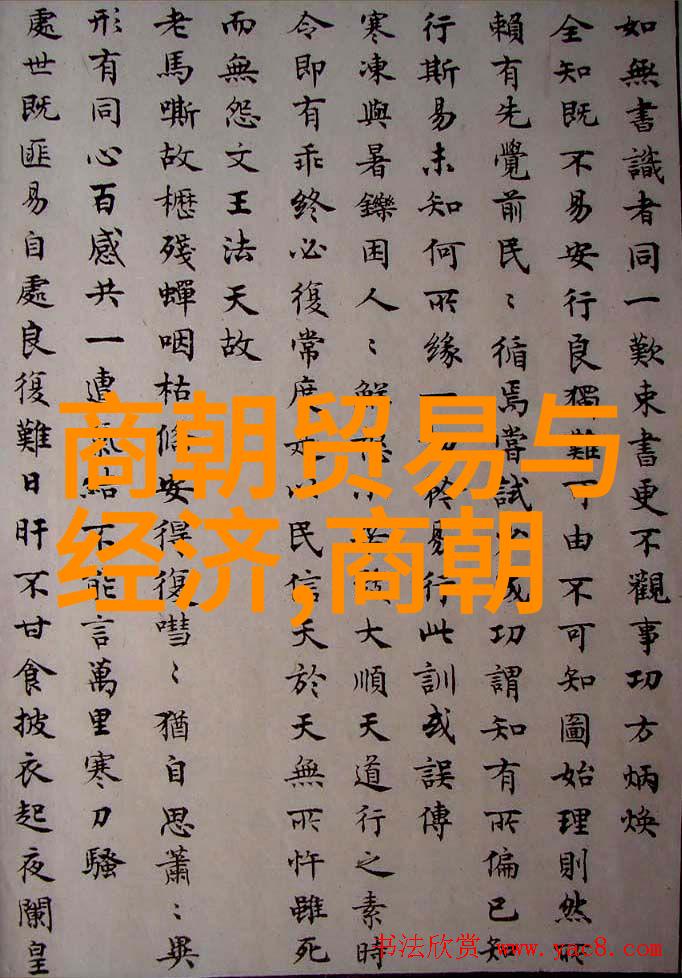 如無書識者同一歎束書更不觀事功方炳煥
全知既不易安行良獨難可由不可知圖始理則然所
賴有先覺前民〻循焉嘗試成功謂知有所偏已知
行斯易未知何所緣一易行此訓或誤傳
寒凍與暑鑠困人〻鮮大順天道行之素時
令即有乖終必復常度是以民信天於天無所忤雖死
而無怨文王法天故
老馬嘶故櫪殘蟬咽枯條安得復嘒〻猶自思蕭〻異
形有同心百感共一遭氣結不能言萬里寒刀騷
處世既匪易自處良復難日旰不甘食披衣起夜闌皇
商朝贸易与
经济,商朝
书法欣赏 www.yac8.com